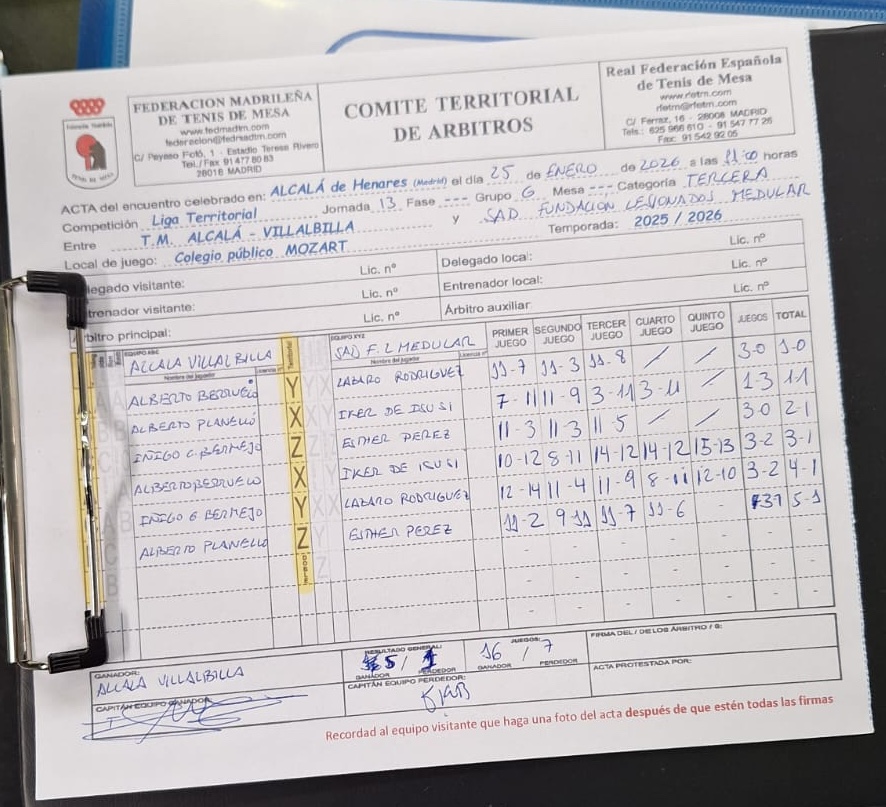 FEDERACION MADRILEÑA
DE TENIS DE MESA
www.fedmadtm.com
federacion@fedmadtm.com
C/ Payaso Fofó, 1 - Estadio Teresa Rivero
Tel./Fax 91 477 80 83
28018 MADRID
COMITE TERRITORIAL
DE ARBITROS
Real Federación Española
de Tenis de Mesa
www.rfetm.com
rfetm@rfetm.com
C/ Ferraz, 16 - 28008 MADRID
Tels.: 625 966 610 - 91 547 77 26
Fax: 91 542 92 05
ACTA del encuentro celebrado en: ALCALÁ de Henares (Madrid) el día 25 de ENERO de 2026 a las 11:00 horas
Competición Liga Territorial Jornada 13 Fase --- Grupo 6 Mesa --- Categoría TERCERA
Entre T.M. ALCALÁ - VILLALBILLA y SAD. FUNDACION LESIONADOS MEDULAR
Local de juego: Colegio público MOZART Temporada: 2025 / 2026
legado visitante: Lic. nº Delegado local: Lic. nº
trenador visitante: Lic. nº Entrenador local: Lic. nº
bitro principal: Lic. nº Árbitro auxiliar: Lic. nº
EQUIPO ABC ALCALA VILLALBILLA EQUIPO XYZ SAD F.L MEDULAR PRIMER JUEGO SEGUNDO JUEGO TERCER JUEGO CUARTO JUEGO QUINTO JUEGO JUEGOS TOTAL
Nombre del jugador Licencia nº Nombre del jugador Licencia nº
ALBERTO BERRUELO Y LAZARO RODRIGUEZ 11-7 11-3 11-8 / / 3-0 1-0
ALBERTO PLANELLÓ X IKER DE ISUSI 7-11 11-9 3-11 3-11 / 1-3 1-1
IÑIGO G BERMEJO Z ESTHER PEREZ 11-3 11-3 11-5 / / 3-0 2-1
ALBERTO BERRUELO X IKER DE ISUSI 10-12 8-11 14-12 14-12 15-13 3-2 3-1
IÑIGO G BERMEJO Y LAZARO RODRIGUEZ 12-14 11-4 11-9 8-11 12-10 3-2 4-1
ALBERTO PLANELLO Z ESTHER PEREZ 11-2 9-11 11-7 11-6 - 31 5-1
GANADOR: ALCALA VILLALBILLA
RESULTADO GENERAL: 5 / 1
GANADOR PERDEDOR
JUEGOS: 16 / 7
GANADOR PERDEDOR
FIRMA DEL / DE LOS ÁRBITRO / S:
CAPITÁN EQUIPO GANADOR
CAPITÁN EQUIPO PERDEDOR:
ACTA PROTESTADA POR:
Recordad al equipo visitante que haga una foto del acta después de que estén todas las firmas